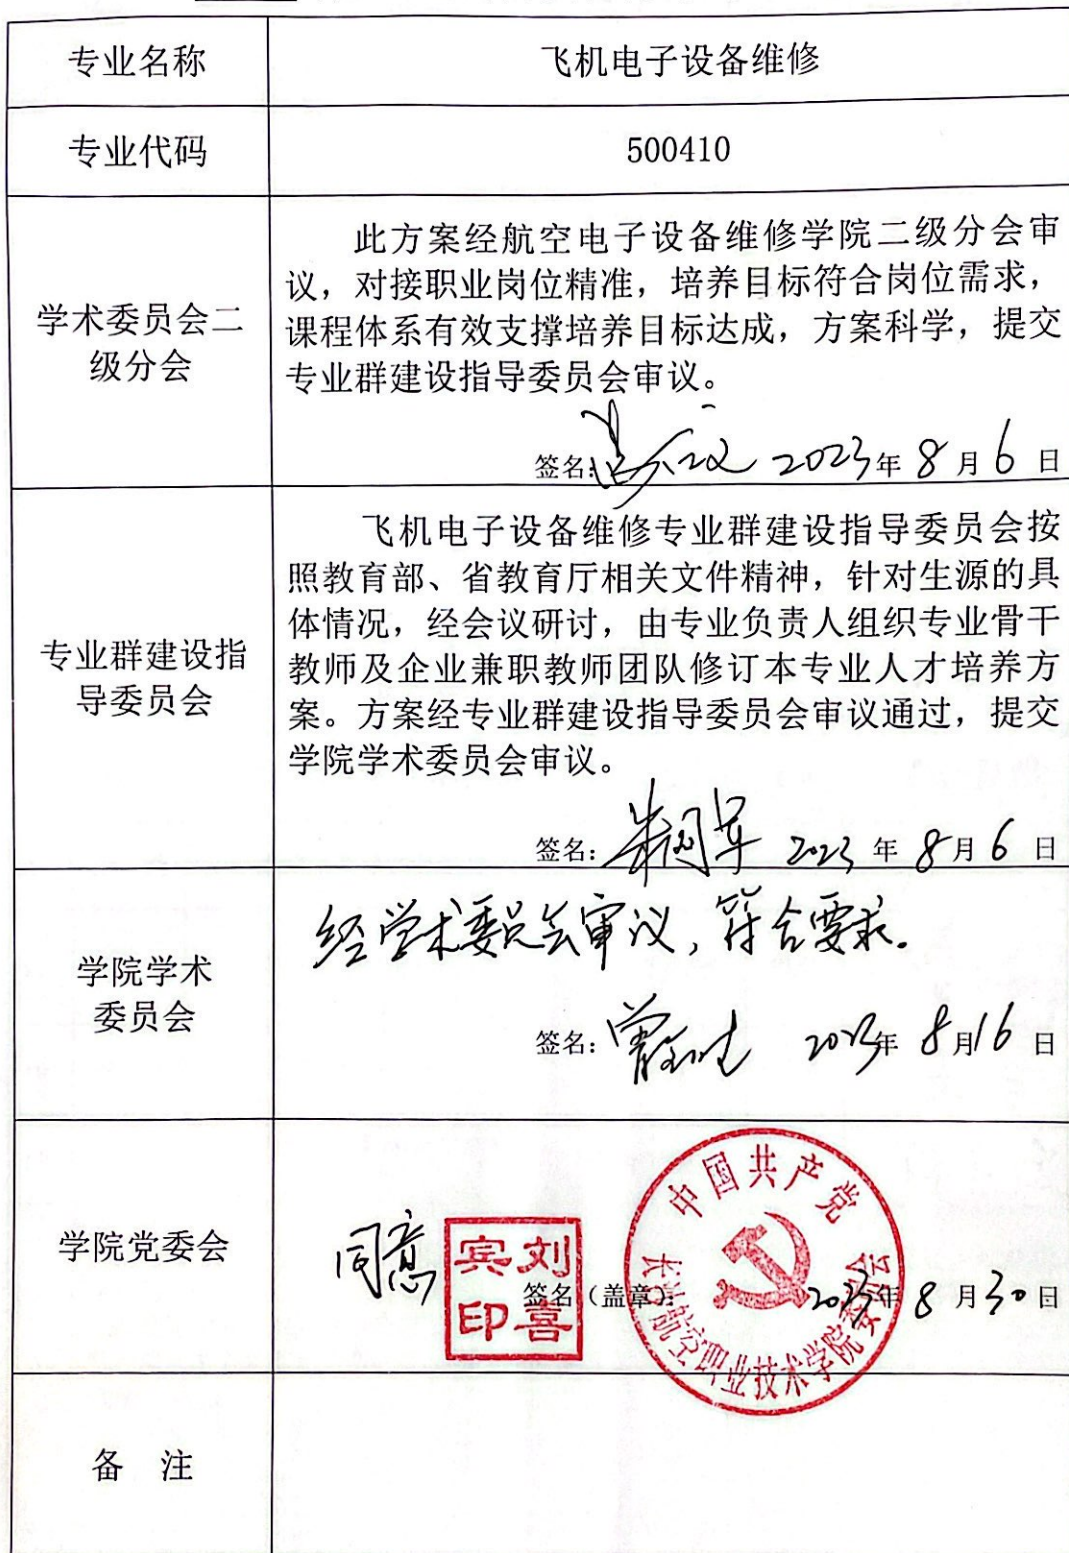 专业名称
飞机电子设备维修
专业代码
500410
学术委员会二
级分会
此方案经航空电子设备维修学院二级分会审
议，对接职业岗位精准，培养目标符合岗位需求，
课程体系有效支撑培养目标达成，方案科学，提交
专业群建设指导委员会审议。
签名: 2023年 8 月 6 日
专业群建设指
导委员会
飞机电子设备维修专业群建设指导委员会按
照教育部、省教育厅相关文件精神，针对生源的具
体情况，经会议研讨，由专业负责人组织专业骨干
教师及企业兼职教师团队修订本专业人才培养方
案。方案经专业群建设指导委员会审议通过，提交
学院学术委员会审议。
签名: 2023 年 8月 6 日
学院学术
委员会
经学术委员会审议，符合要求。
签名: 2023年 8月16 日
学院党委会
同意
刘喜
宾印
中国共产党
长沙航空职业技术学院委员会
签名（盖章）: 2023年 8 月30日
备 注